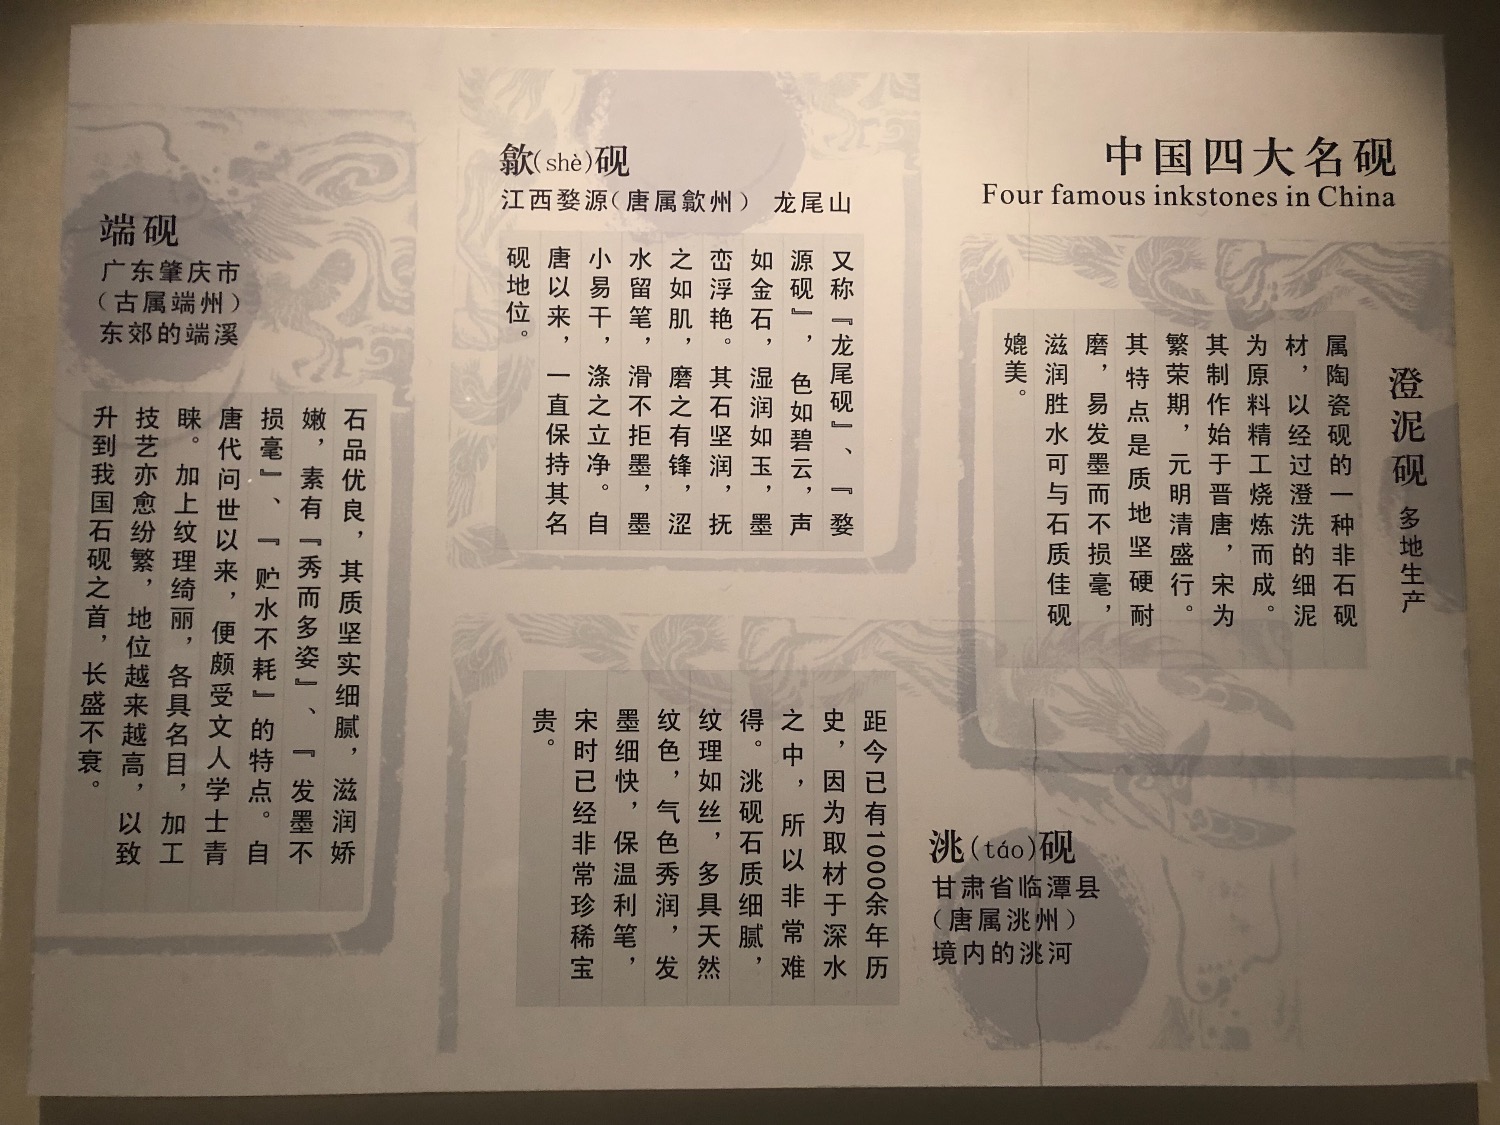 中国四大名砚
Four famous inkstones in China
澄泥砚 多地生产
属陶瓷砚的一种非石砚
材，以经过澄洗的细泥
为原料精工烧炼而成。
其制作始于晋唐，宋为
繁荣期，元明清盛行。
其特点是质地坚硬耐
磨，易发墨而不损毫，
滋润胜水可与石质佳砚
媲美。
歙(shè)砚
江西婺源（唐属歙州） 龙尾山
又称『龙尾砚』、『婺
源砚』，色如碧云，声
如金石，湿润如玉，墨
峦浮艳。其石坚润，抚
之如肌，磨之有锋，涩
水留笔，滑不拒墨，墨
小易干，涤之立净。自
唐以来，一直保持其名
砚地位。
洮(táo)砚
甘肃省临潭县
（唐属洮州）
境内的洮河
距今已有1000余年历
史，因为取材于深水
之中，所以非常难
得。洮砚石质细腻，
纹理如丝，多具天然
纹色，气色秀润，发
墨细快，保温利笔，
宋时已经非常珍稀宝
贵。
端砚
广东肇庆市
（古属端州）
东郊的端溪
石品优良，其质坚实细腻，滋润娇
嫩，素有『秀而多姿』、『发墨不
损毫』、『贮水不耗』的特点。自
唐代问世以来，便颇受文人学士青
睐。加上纹理绮丽，各具名目，加工
技艺亦愈纷繁，地位越来越高，以致
升到我国石砚之首，长盛不衰。